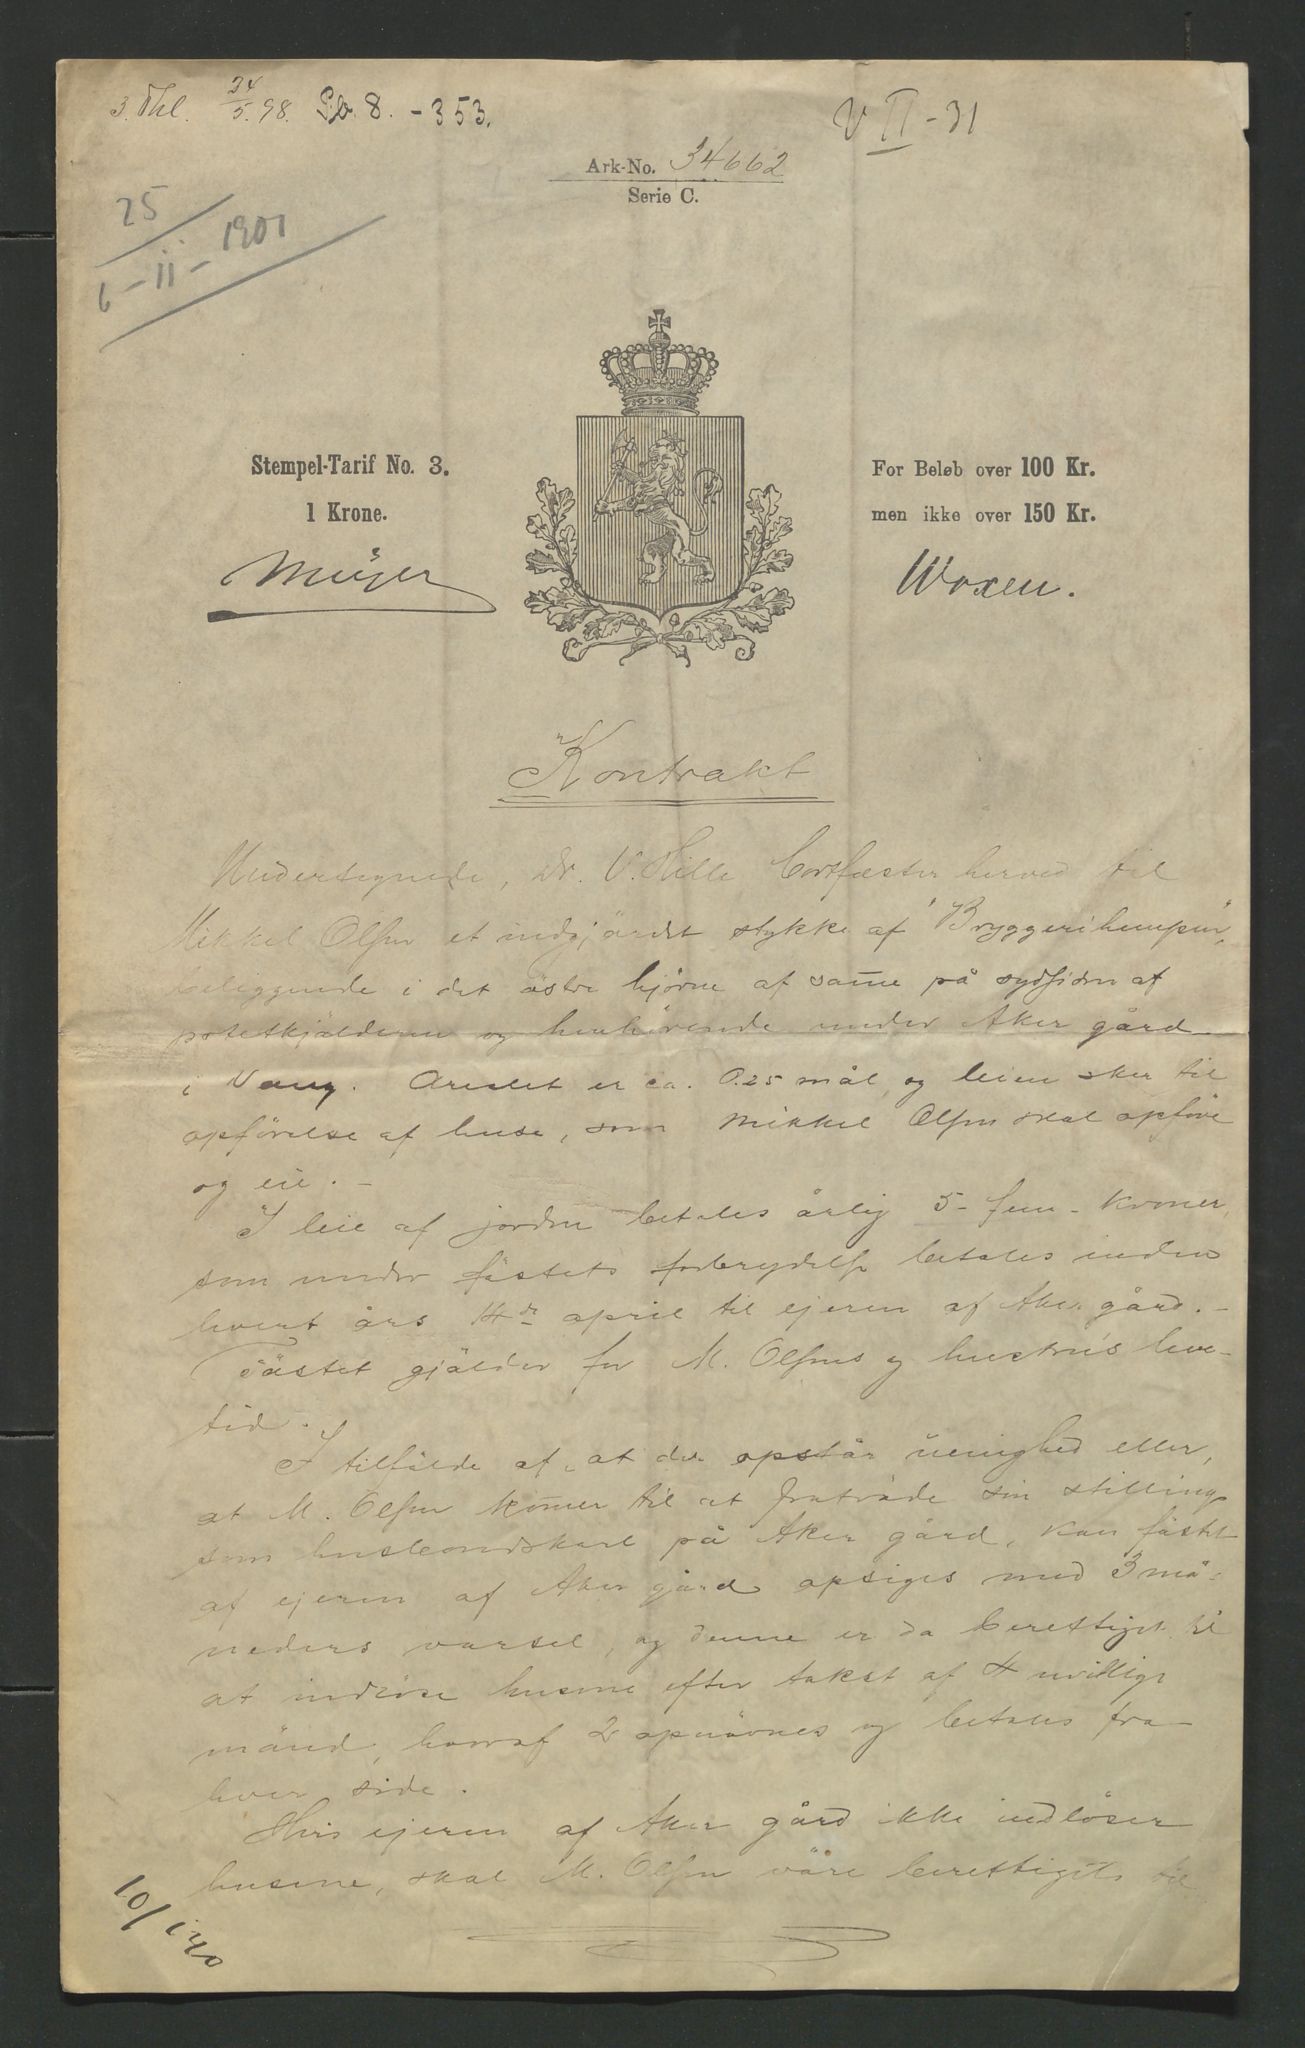 3. Thl. 24/5.98. Pb. 8. - 353.
V II - 31
Ark-No. 34662
Serie C.
25
6 - II - 1901
Stempel-Tarif No. 3.
1 Krone.
For Beløb over 100 Kr.
men ikke over 150 Kr.
Meijer
Woxen.
Kontrakt
Undertegnede, Dr. V. Hille bortfæster herved til
Mikkel Olsen et indgjärdet stykke af "Bryggerihempen",
beliggende i det östre hjörne af same på sydsiden af
potetkjälderen og henhörende under Aker gård
i Vang. Arealet er ca. 0.25 mål, og leien sker til
opförelse af huse, som Mikkel Olsen skal opföre
og eie. -
I leie af jorden betales årlig 5 - fem - kroner,
som under fästets forbrydelse betales inden
hvert års 14de april til ejeren af Aker gård. -
Fästet gjälder for M. Olsens og hustru's leve-
tid.
I tilfälde af, at der opstår uenighed eller,
at M. Olsen komer til at fraträde sin stilling
som husbondskarl på Aker gård, kan fästet
af ejeren af Aker gård opsiges med 3 må-
neders varsel, og denne er da berettiget til
at indlöse husene efter takst af 4 uvillige
mänd, hvoraf 2 opnävnes og betales fra
hver side.
Hvis ejeren af Aker gård ikke indlöser
husene, skal M. Olsen väre berettiget til
10/140